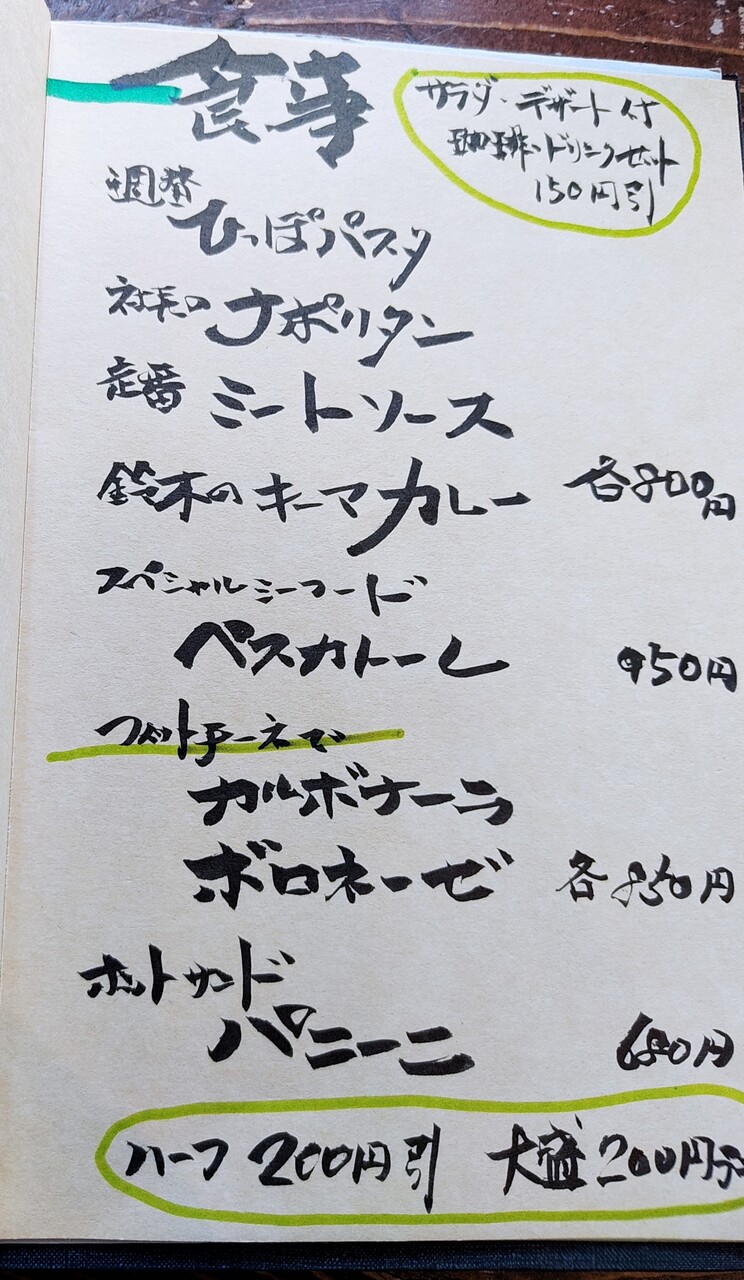 食事
サラダ・デザート付
珈琲・ドリンクセット
150円引
週替
ひっぽパスタ
社長の ナポリタン
定番 ミートソース
鈴木の キーマカレー 各800円
スペシャルシーフード
ペスカトーレ 950円
フェットチーネで
カルボナーラ
ボロネーゼ 各850円
ホットサンド
パニーニ 680円
ハーフ 200円引 大盛 200円